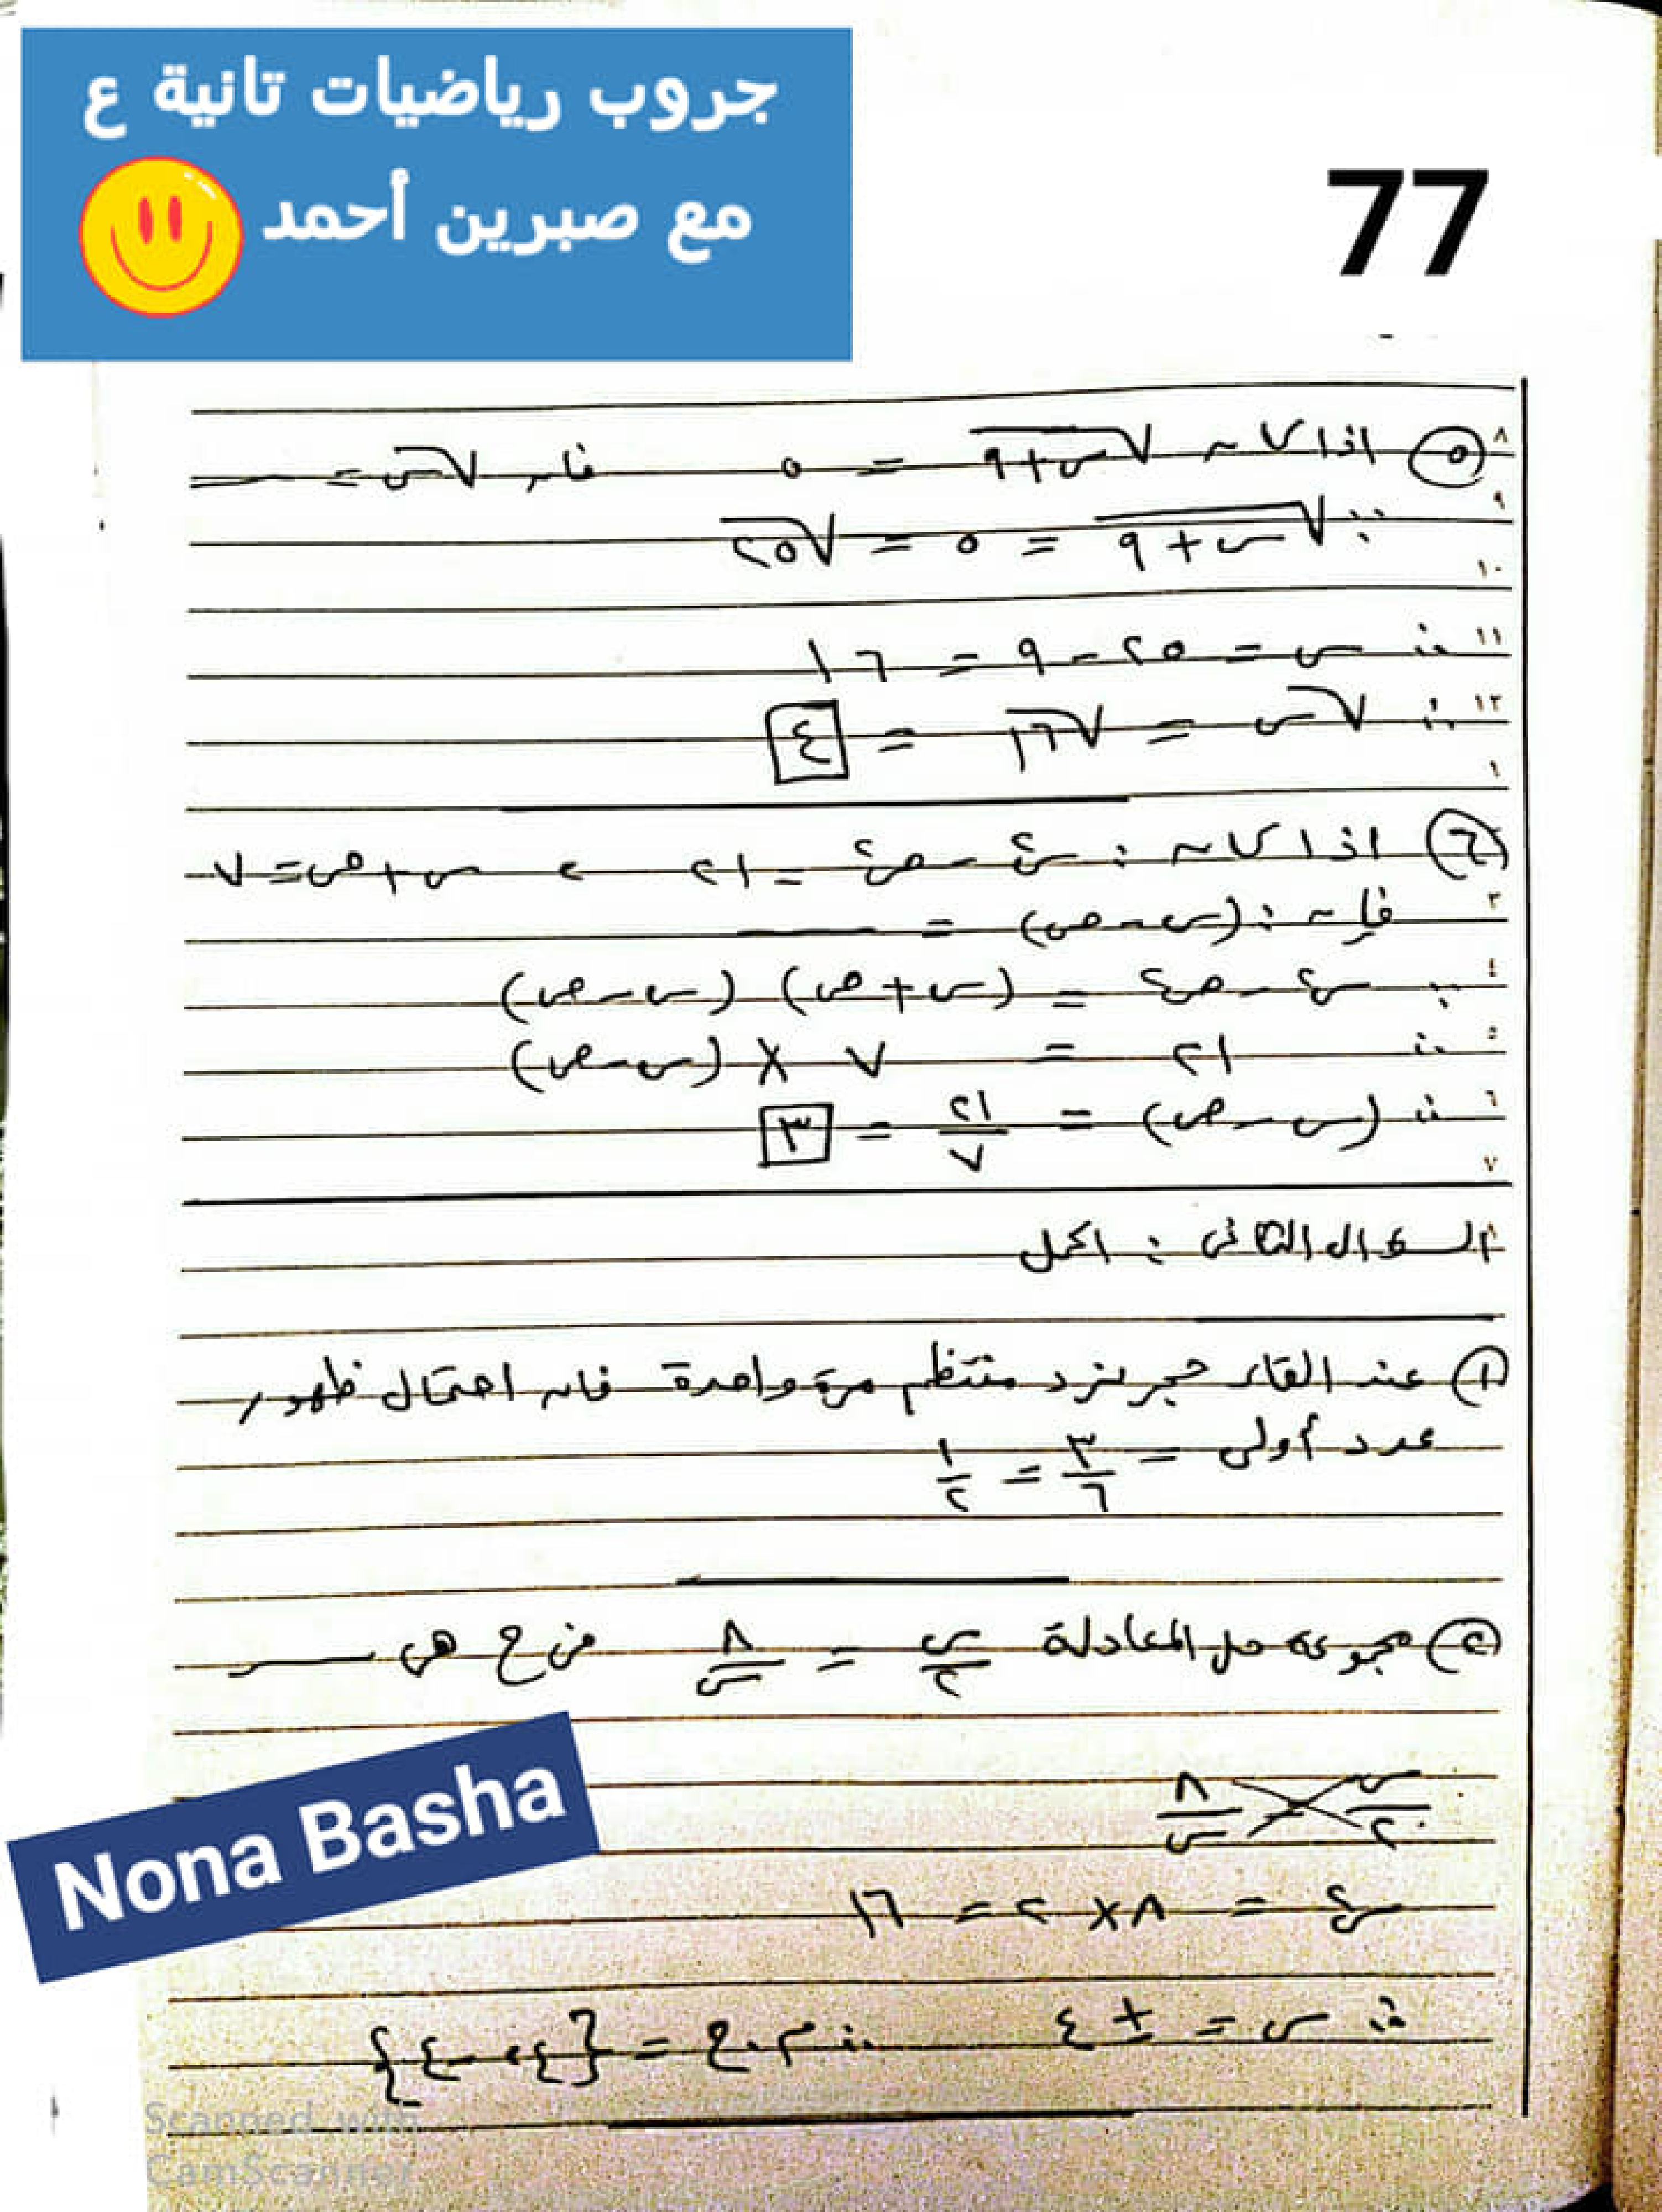 جروب رياضيات تانية ع
مع صبرين أحمد
77
٨
٥ اذا كان √(س+٩) = ٥ فان √س = ــــ
٩
∵ √(س+٩) = ٥ = √٢٥
١٠
١١
∴ س = ٢٥ - ٩ = ١٦
١٢
∴ √س = √١٦ = ٤
١
٦ اذا كان : س٢ - ص٢ = ٢١ ، س + ص = ٧
٣
فإن : (س - ص) = ــــ
٤
∵ س٢ - ص٢ = (س + ص) (س - ص)
٥
∴ ٢١ = ٧ × (س - ص)
٦
∴ (س - ص) = ٢١/٧ = ٣
٧
السؤال الثانى : اكمل
١ عند القاء حجر نرد منتظم مرة واحدة فان احتمال ظهور
عدد أولى = ٣/٦ = ١/٢
٢ مجموعة حل المعادلة س/٢ = ٨/س فى ح هى ــــ
س/٢ = ٨/س
س٢ = ٨ × ٢ = ١٦
∴ س = ± ٤ ∴ م.ح = {٤، -٤}
Nona Basha
Scanned with
CamScanner